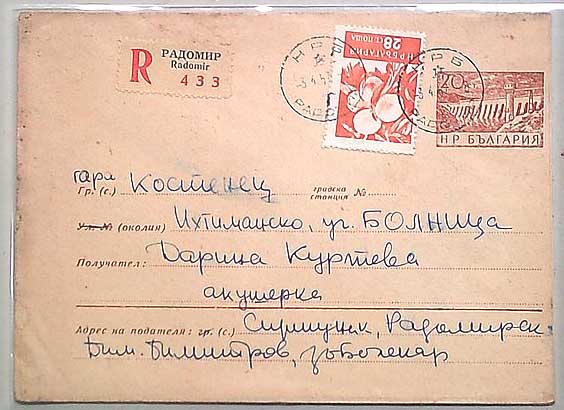 R РАДОМИР
Radomir
433
НР БЪЛГАРИЯ
28 СТ. ПОЩА
НРБ
НРБ
20
НР БЪЛГАРИЯ
гара Костенец
Гр. (с.) градска станция №
Ул. № (околия) Ихтиманско, уч. БОЛНИЦА
Получател: Дарина Куртева
акушерка
Адрес на подателя: гр. (с.) Радомирск
Дим. Димитров, зъболекар